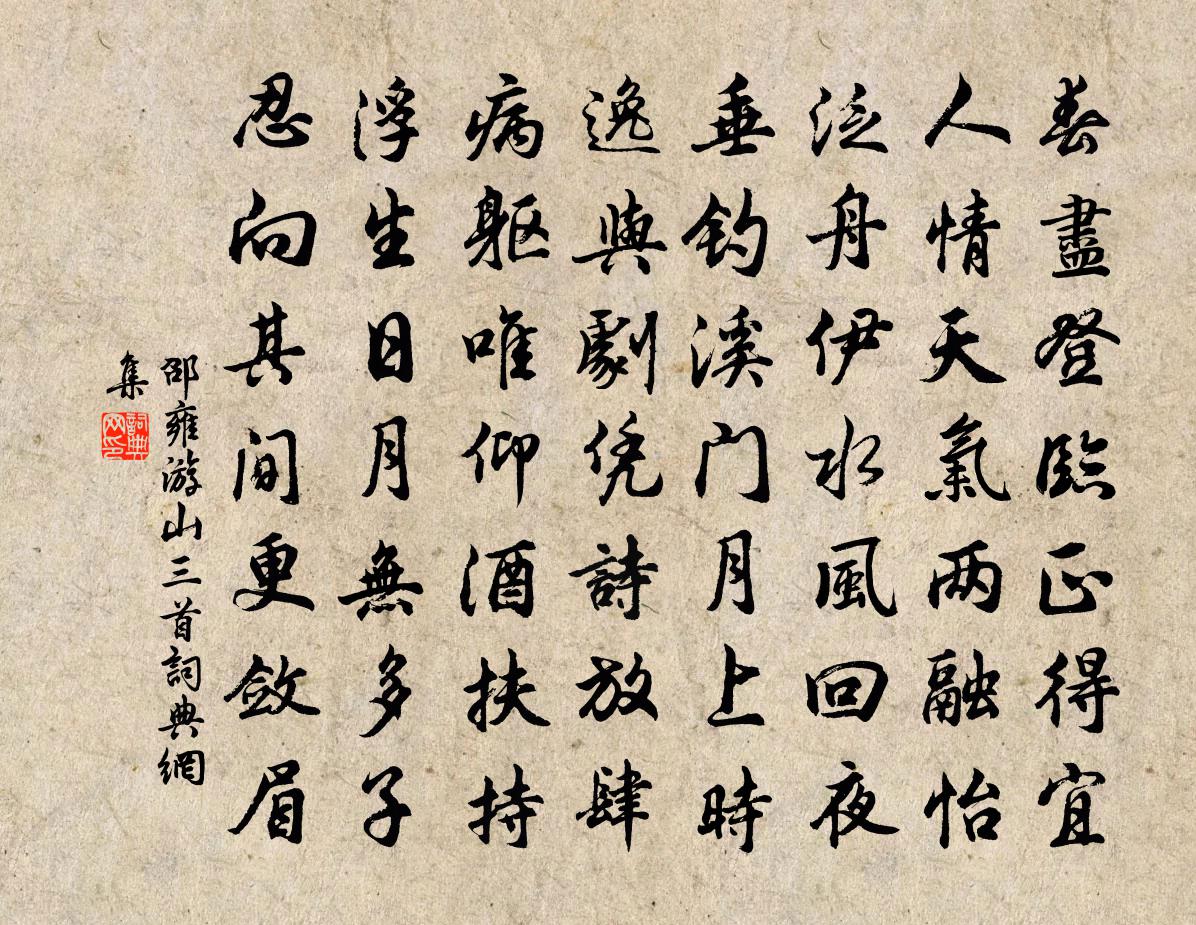 春盡登臨正得宜
人情天氣两融怡
泛舟伊水風回夜
垂釣溪门月上時
逸興劇凭詩放肆
病軀唯仰酒扶持
浮生日月無多子
忍向其間更斂眉
邵雍游山三首詞典網
集
詞典网印